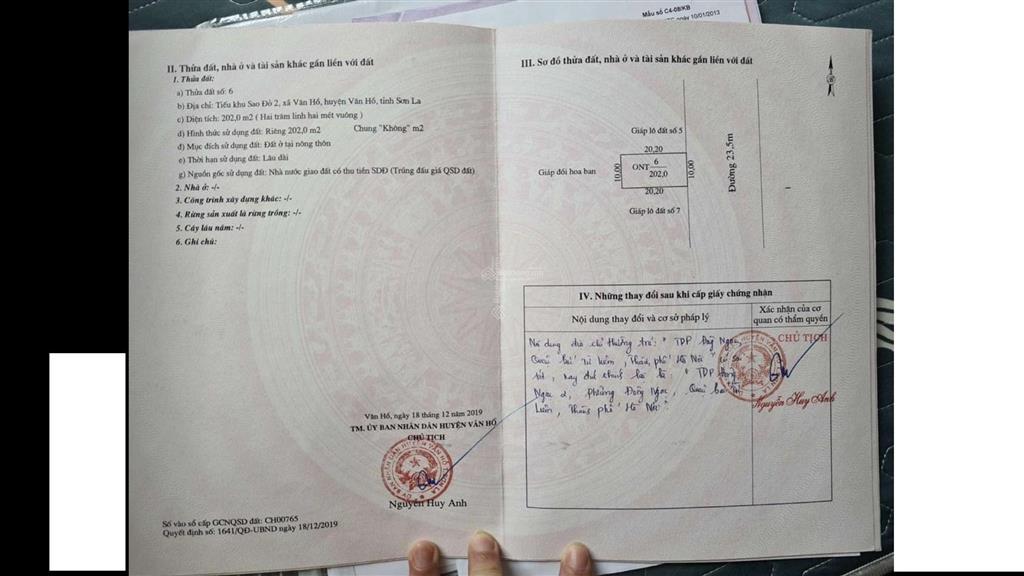 Mẫu số C4-08/KB
ngày 10/01/2013
II. Thửa đất, nhà ở và tài sản khác gắn liền với đất
1. Thửa đất:
a) Thửa đất số: 6
b) Địa chỉ: Tiểu khu Sao Đỏ 2, xã Vân Hồ, huyện Vân Hồ, tỉnh Sơn La
c) Diện tích: 202,0 m2 ( Hai trăm linh hai mét vuông )
d) Hình thức sử dụng đất: Riêng 202,0 m2 Chung "Không" m2
đ) Mục đích sử dụng đất: Đất ở tại nông thôn
e) Thời hạn sử dụng đất: Lâu dài
g) Nguồn gốc sử dụng đất: Nhà nước giao đất có thu tiền SDĐ (Trúng đấu giá QSD đất)
2. Nhà ở: -/-
3. Công trình xây dựng khác: -/-
4. Rừng sản xuất là rừng trồng: -/-
5. Cây lâu năm: -/-
6. Ghi chú:
Vân Hồ, ngày 18 tháng 12 năm 2019
TM. ỦY BAN NHÂN DÂN HUYỆN VÂN HỒ
CHỦ TỊCH
Nguyễn Huy Anh
Số vào sổ cấp GCNQSD đất: CH00765
Quyết định số: 1641/QĐ-UBND ngày 18/12/2019
III. Sơ đồ thửa đất, nhà ở và tài sản khác gắn liền với đất
Giáp lô đất số 5
20,20
Giáp đồi hoa ban
10,00
ONT 6
202,0
10,00
Đường 23,5m
20,20
Giáp lô đất số 7
IV. Những thay đổi sau khi cấp giấy chứng nhận
Nội dung thay đổi và cơ sở pháp lý
Xác nhận của cơ
quan có thẩm quyền
Nội dung địa chỉ thường trú: " TDP
Từ Liêm, Thành phố Hà Nội "
" TDP Đông
Ngạc 2, Phường Đông Ngạc, Quận Bắc Từ
Liêm, Thành phố Hà Nội "
CHỦ TỊCH
Nguyễn Huy Anh